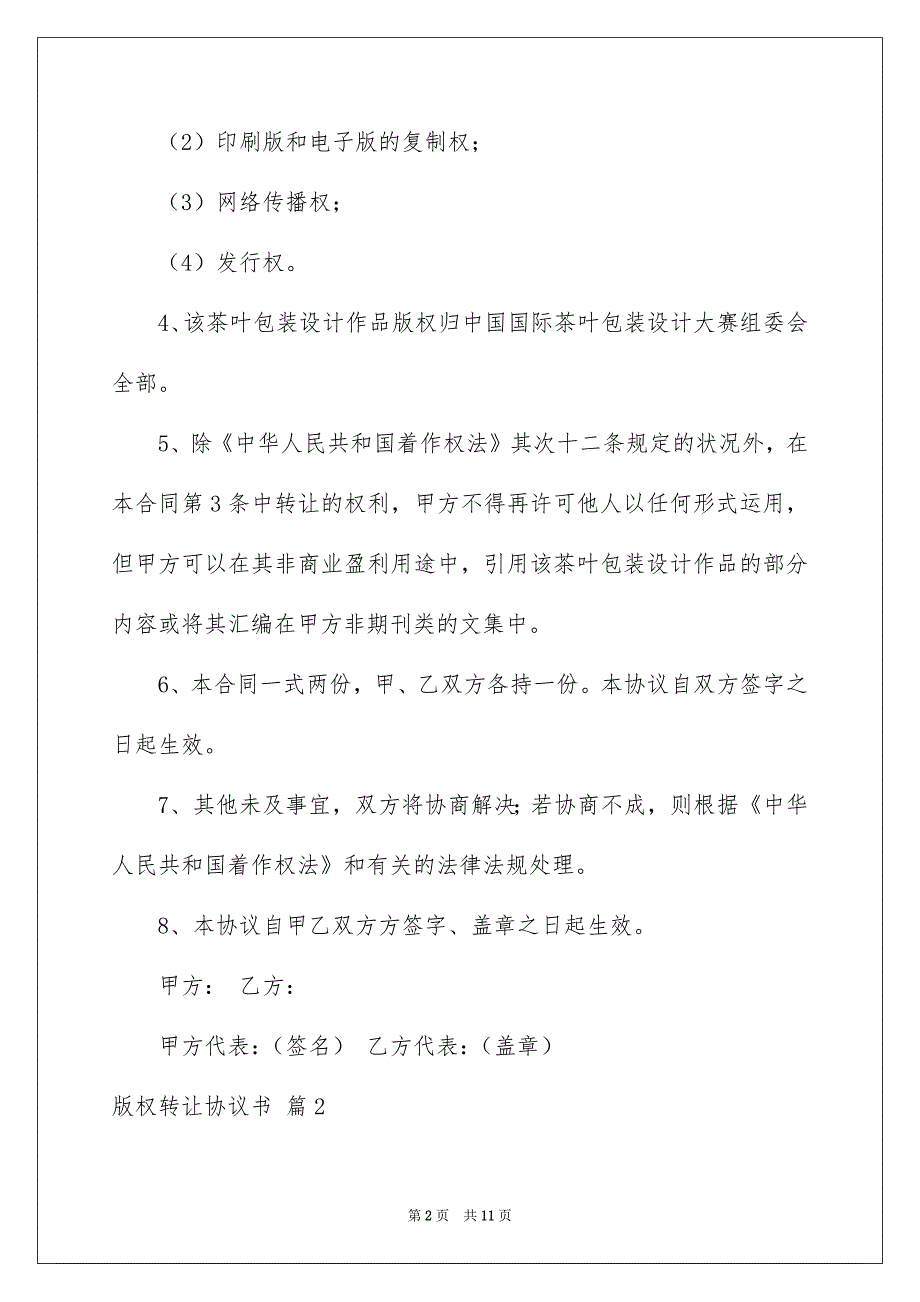 （2）印刷版和电子版的复制权；
（3）网络传播权；
（4）发行权。
4、该茶叶包装设计作品版权归中国国际茶叶包装设计大赛组委会
全部。
5、除《中华人民共和国着作权法》其次十二条规定的状况外，在
本合同第 3 条中转让的权利，甲方不得再许可他人以任何形式运用，
但甲方可以在其非商业盈利用途中，引用该茶叶包装设计作品的部分
内容或将其汇编在甲方非期刊类的文集中。
6、本合同一式两份，甲、乙双方各持一份。本协议自双方签字之
日起生效。
7、其他未及事宜，双方将协商解决；若协商不成，则根据《中华
人民共和国着作权法》和有关的法律法规处理。
8、本协议自甲乙双方方签字、盖章之日起生效。
甲方： 乙方：
甲方代表：（签名） 乙方代表：（盖章）
版权转让协议书 篇 2
第 2 页 共 11 页